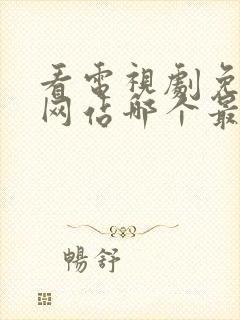 看電視劇免
网站哪个最
暢舒